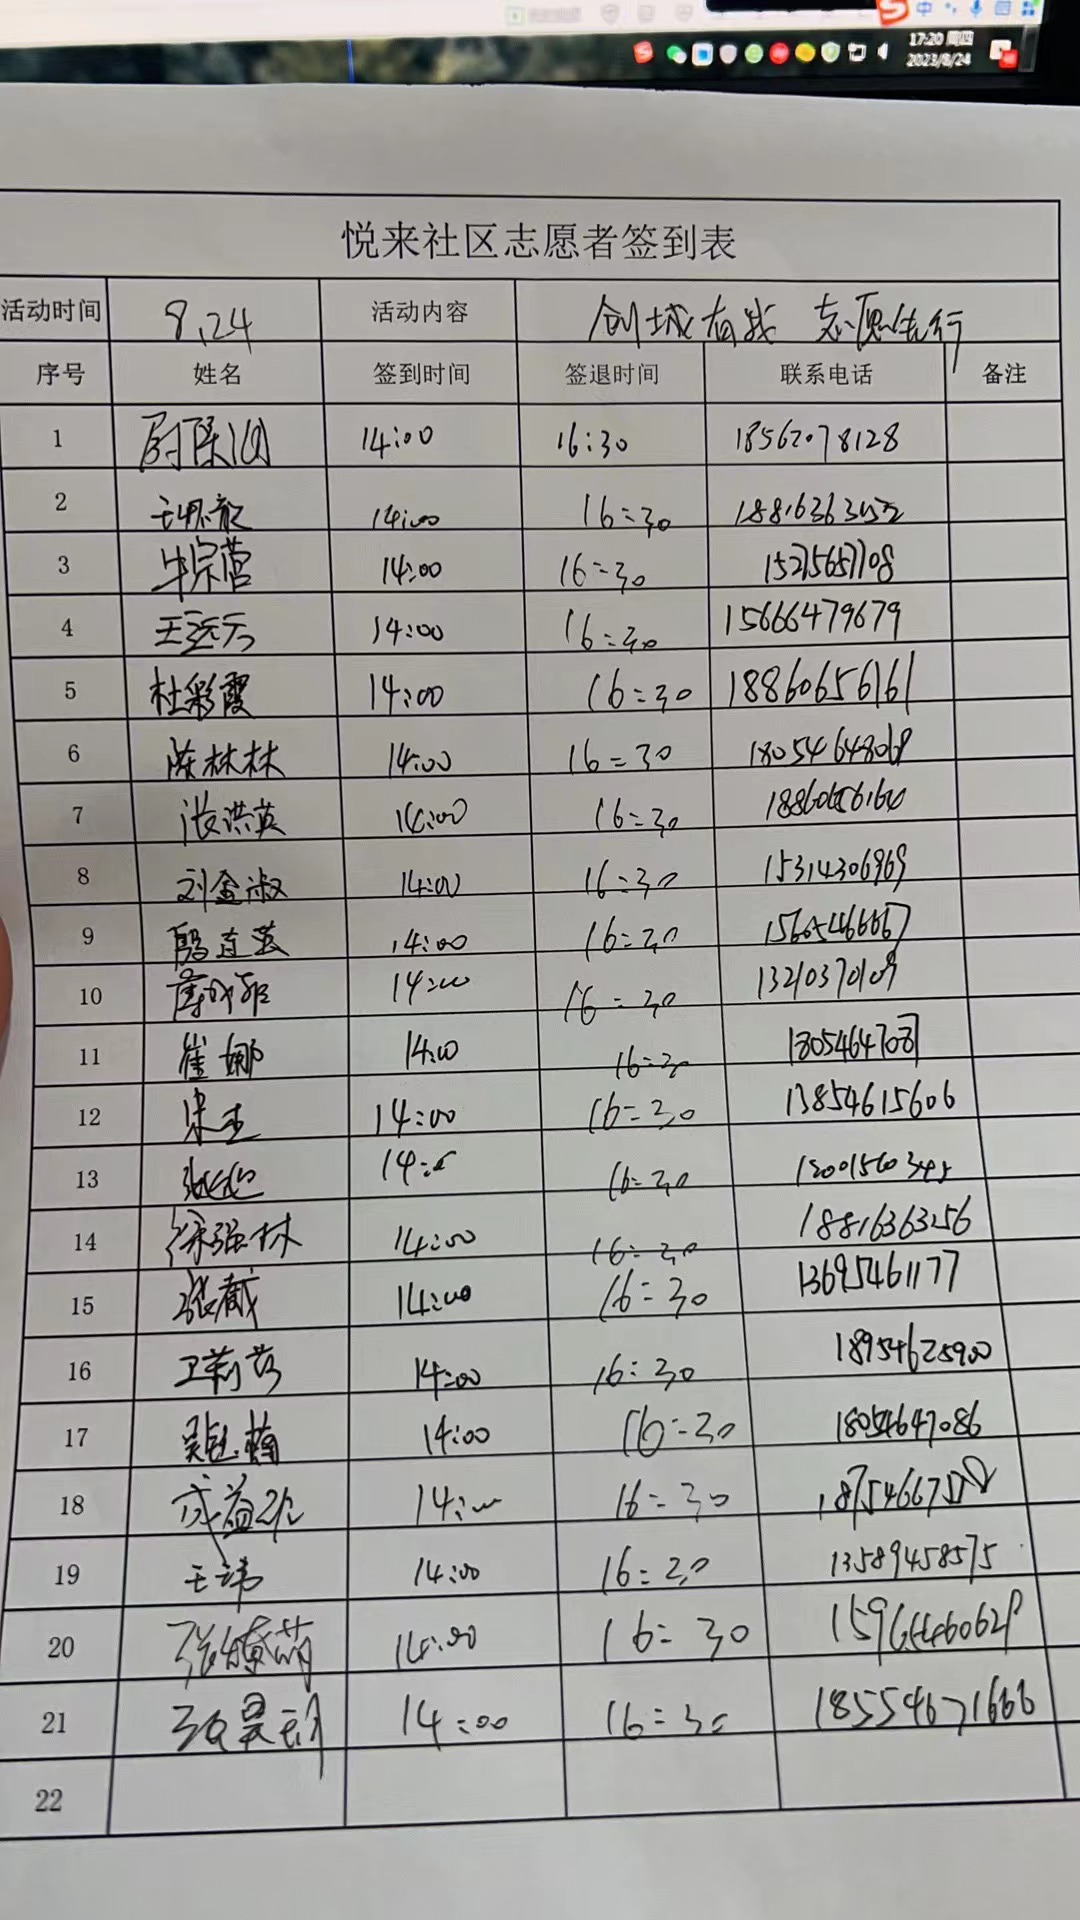 中
17:20 周四
2023/8/24
悦来社区志愿者签到表
活动时间 8.24 活动内容 创城有我 志愿先行
序号 姓名 签到时间 签退时间 联系电话 备注
1 14:00 16:30 18562078128
2 14:00 16:30
3 牛宗营 14:00 16:30 15275657708
4 14:00 16:30 15666479679
5 杜彩霞 14:00 16:30 18860656161
6 陈林林 14:00 16:30 18054648068
7 张洪英 14:00 16:30
8 刘金淑 14:00 16:30 15314306969
9 14:00 16:30 15605466667
10 14:00 16:30 13210370109
11 崔娜 14:00 16:30
12 14:00 16:30 13854615606
13 14:00 16:30
14 徐强林 14:00 16:30 18816363256
15 14:00 16:30 13695461177
16 14:00 16:30 18954625900
17 14:00 16:30 18054647086
18 14:00 16:30
19 王玮 14:00 16:30 13589458575
20 14:00 16:30
21 14:00 16:30 18554671666
22